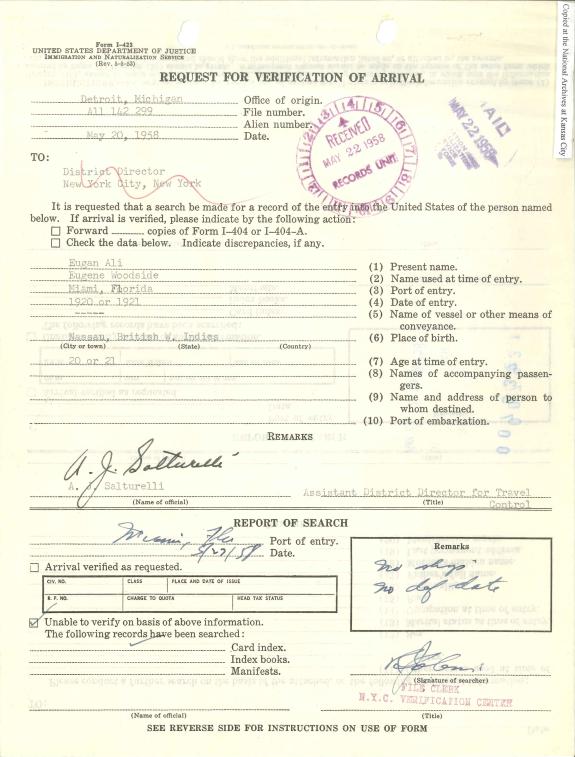 Copied at the National Archives at Kansas City
Form I-423
UNITED STATES DEPARTMENT OF JUSTICE
IMMIGRATION AND NATURALIZATION SERVICE
(Rev. 5-8-53)
REQUEST FOR VERIFICATION OF ARRIVAL
Detroit, Michigan Office of origin.
A11 142 299 File number.
Alien number.
May 20, 1958 Date.
RECEIVED
MAY 22 1958
RECORDS UNIT
MAIL
MAY 22 1958
TO:
District Director
New York City, New York
It is requested that a search be made for a record of the entry into the United States of the person named
below. If arrival is verified, please indicate by the following action:
Forward copies of Form I-404 or I-404-A.
Check the data below. Indicate discrepancies, if any.
Eugan Ali (1) Present name.
Eugene Woodside (2) Name used at time of entry.
Miami, Florida (3) Port of entry.
1920 or 1921 (4) Date of entry.
----- (5) Name of vessel or other means of
conveyance.
Nassau, British W. Indies (6) Place of birth.
(City or town) (State) (Country)
20 or 21 (7) Age at time of entry.
(8) Names of accompanying passen-
gers.
(9) Name and address of person to
whom destined.
(10) Port of embarkation.
REMARKS
A. J. Salturelli
A. J. Salturelli Assistant District Director for Travel
(Name of official) (Title) Control
REPORT OF SEARCH
Miami, Fla Port of entry.
5/27/58 Date.
Remarks
no ship
no def date
Arrival verified as requested.
CIV. NO. CLASS PLACE AND DATE OF ISSUE
R. P. NO. CHARGE TO QUOTA HEAD TAX STATUS
Unable to verify on basis of above information.
The following records have been searched:
Card index.
Index books.
Manifests.
(Signature of searcher)
FILE CLERK
N.Y.C. VERIFICATION CENTER
(Name of official) (Title)
SEE REVERSE SIDE FOR INSTRUCTIONS ON USE OF FORM